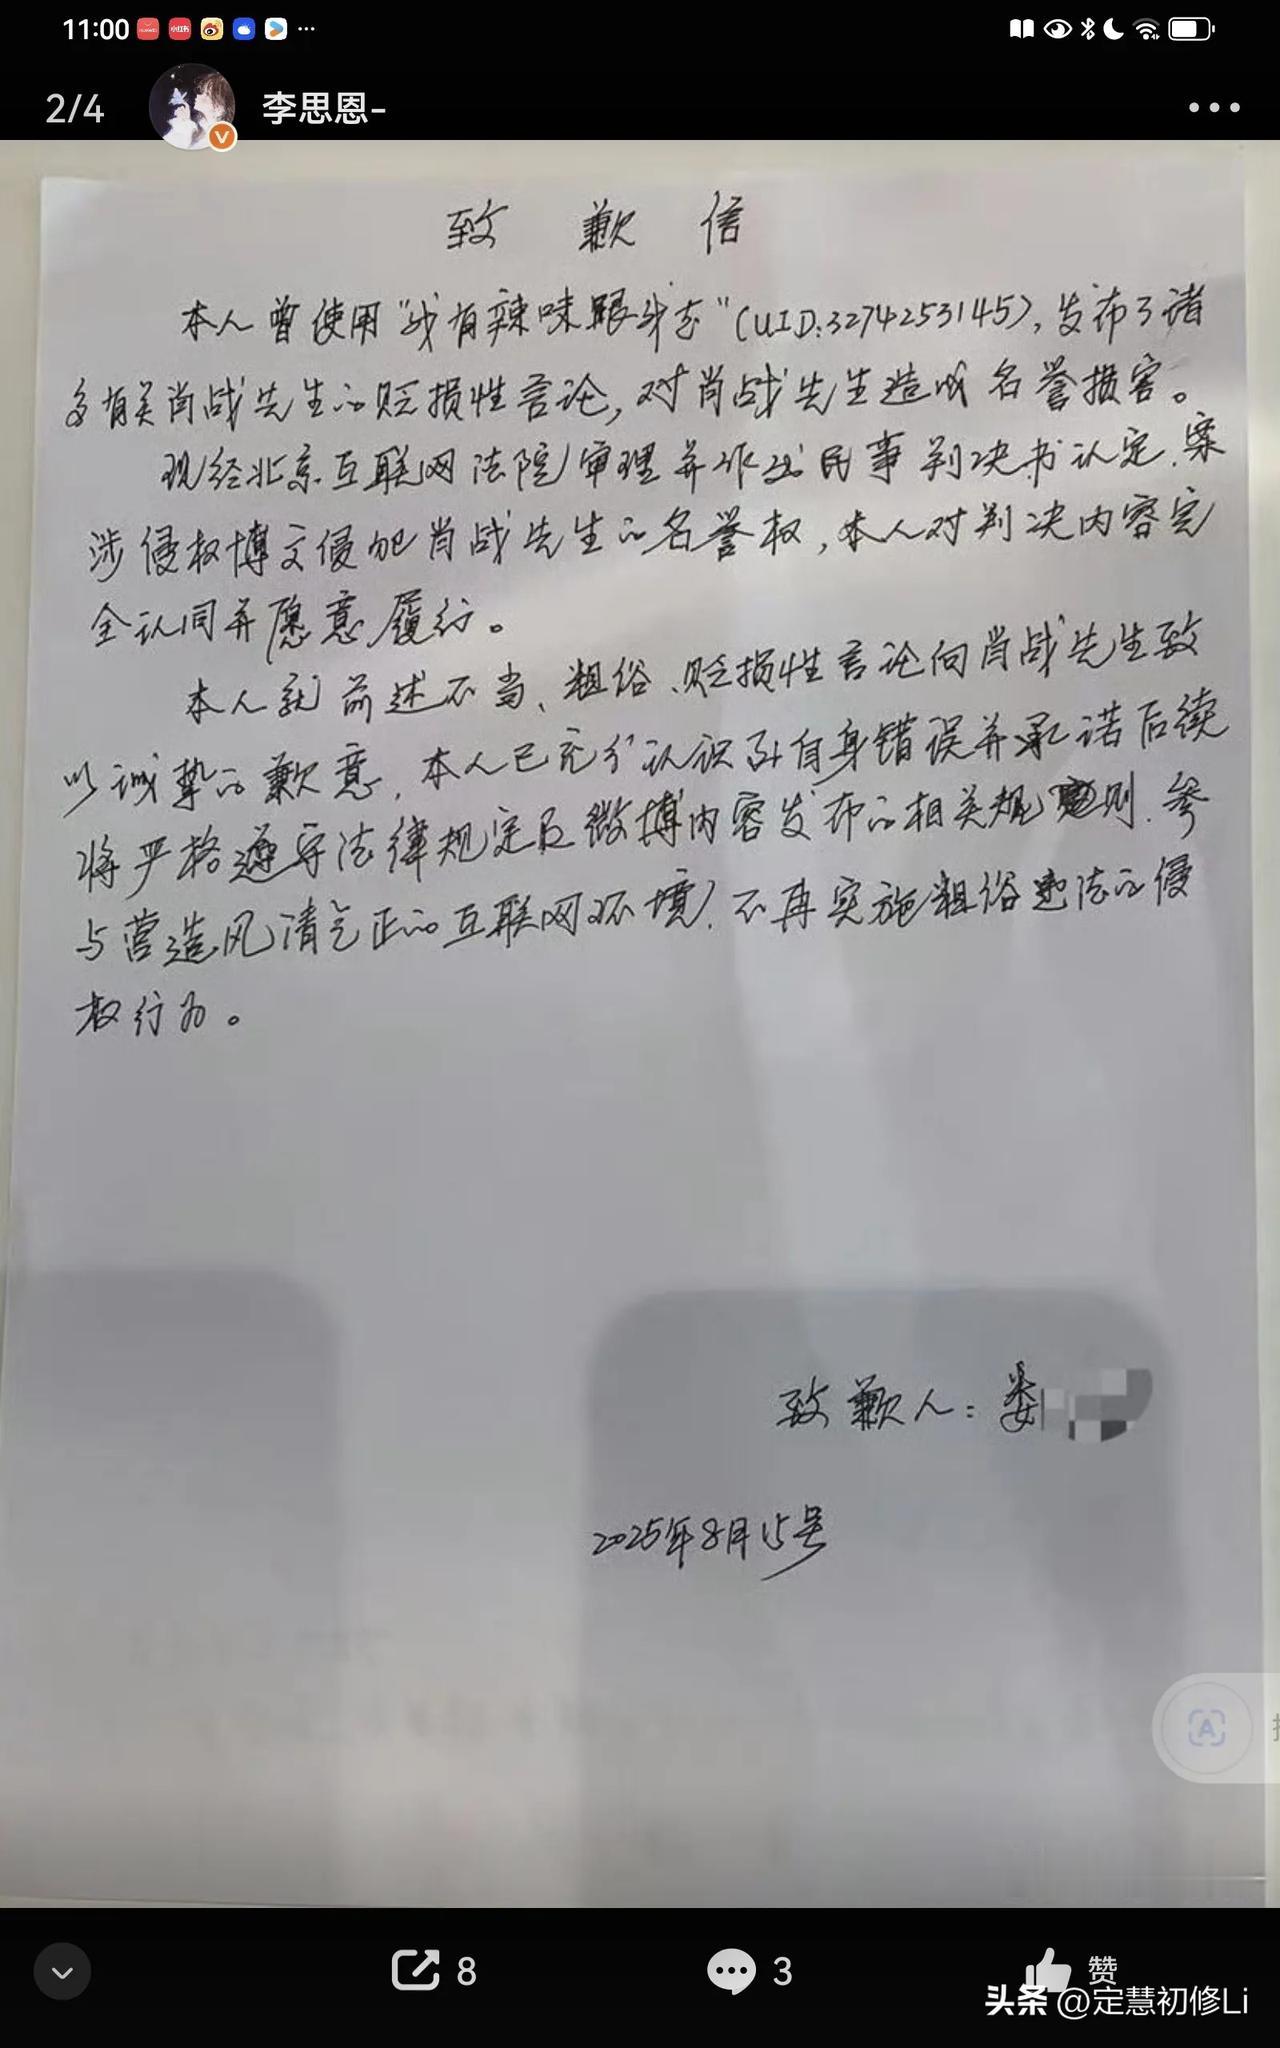 11:00
2/4 李思恩-
致歉信
本人曾使用“我有辣味跟我走”(UID:3274253145),发布了诸
多有关肖战先生的贬损性言论,对肖战先生造成名誉损害。
现经北京互联网法院审理并作出民事判决书认定,案
涉侵权博文侵犯肖战先生的名誉权,本人对判决内容完
全认同并愿意履行。
本人就前述不当、粗俗、贬损性言论向肖战先生致
以诚挚的歉意,本人已充分认识到自身错误并承诺后续
将严格遵守法律规定及微博内容发布的相关规则,参
与营造风清气正的互联网环境,不再实施粗俗违法的侵
权行为。
致歉人:娄
2025年8月15号
8
3
赞
头条 @定慧初修Li